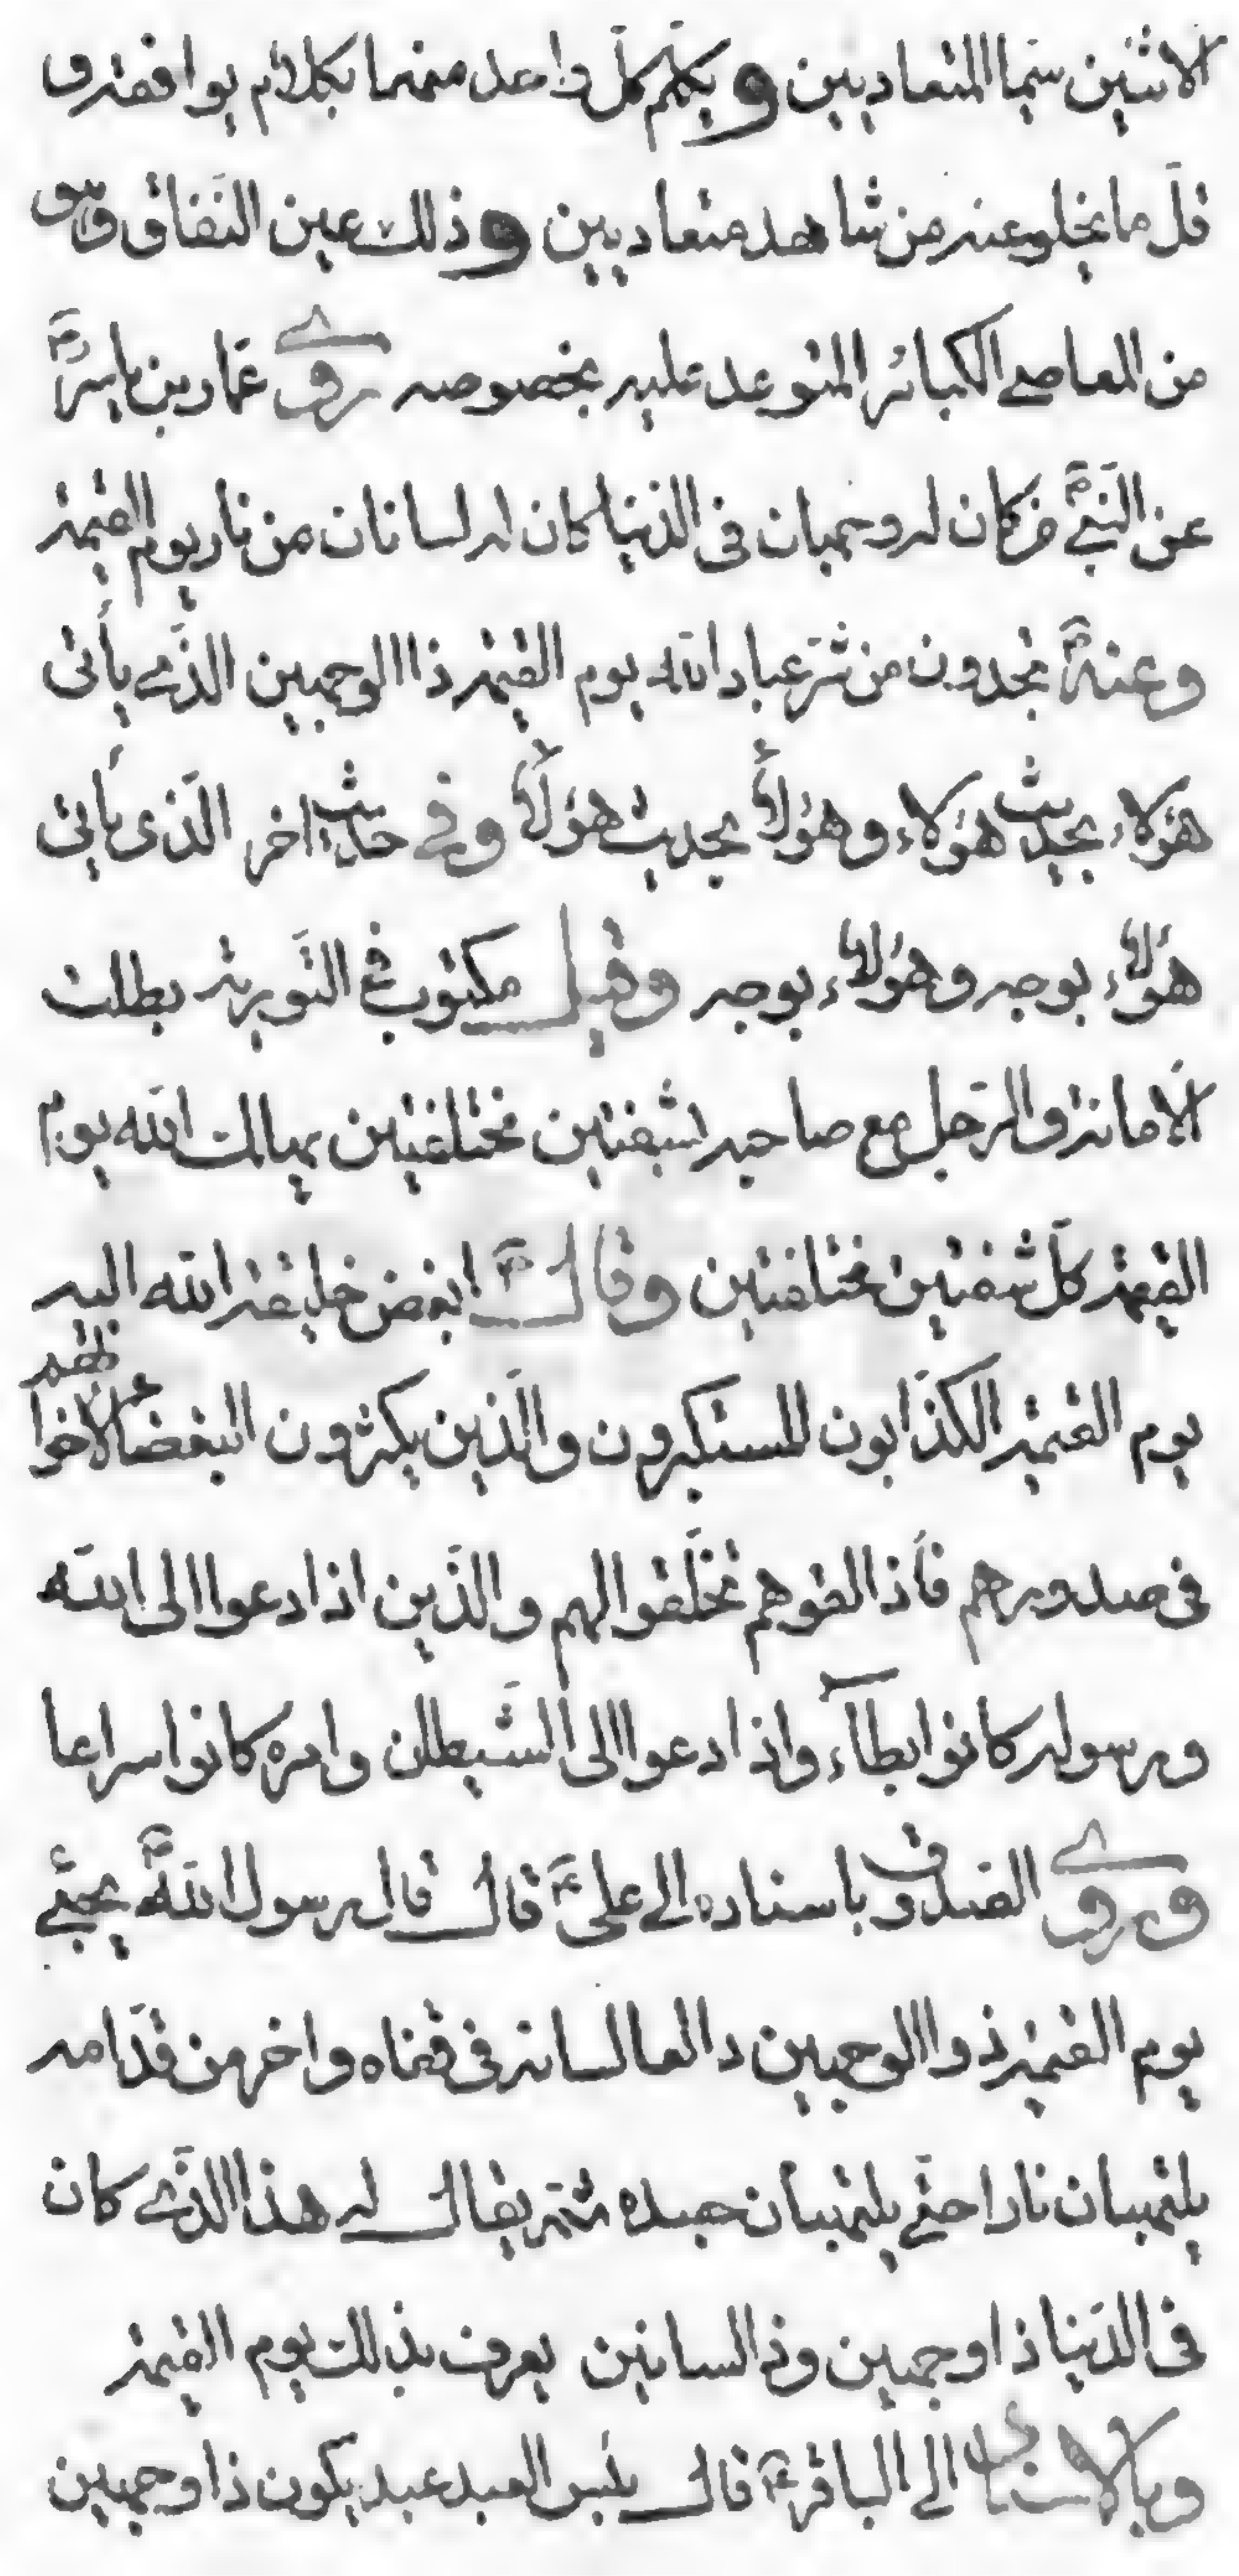 الاثنين سيّما المتعاديين ويكلّم كلّ واحد منهما بكلام يوافقه و
قلّ ما يخلو عنه من شاهد متعاديين وذلك عين النّفاق وهو
من المعاصے الكبائر المتوعد عليه بخصوصه روے عمّار بن ياسرؓ
عن النّبےؐ من كان له وجهان فى الدّنيا كان له لسانان من نار يوم القيمة
وعنهؐ تجدون من شرّ عباد الله يوم القيمة ذا الوجهين الّذے يأتى
هؤلاء بحديث هؤلاء وهؤلاء بحديث هؤلاء وفے حديث اخر الّذى يأتى
هؤلاء بوجه وهؤلاء بوجه وقيل مكتوب فے التّورية بطلت
الامانة والرّجل مع صاحبه بشفتين مختلفتين يهلك الله يوم
القيمة كلّ شفتين مختلفتين وقالؐ ابغض خليقة الله اليه
يوم القيمة الكذّابون المستكبرون والّذين يكثرون البغضاء لاخوانهم
فى صدورهم فأذا لقوهم تخلّقوا لهم والّذين اذا دعوا الى الله
ورسوله كانوا بطآء واذا دعوا الى الشّيطان وامره كانوا سراعا
وروے الصّدوق باسناده الے علىؑ قال قال رسول اللهؐ يجيئے
يوم القيمة ذو الوجهين دالعا لسانه فى قفاه واخر من قدّامه
يلتهبان نارا حتّے يلتهبان جسده ثمّ يقال له هذا الّذے كان
فى الدّنيا ذا وجهين وذا لسانين يعرف بذلك يوم القيمة
وبالاسناد الے الباقرؑ قال بئس العبد عبد يكون ذا وجهين